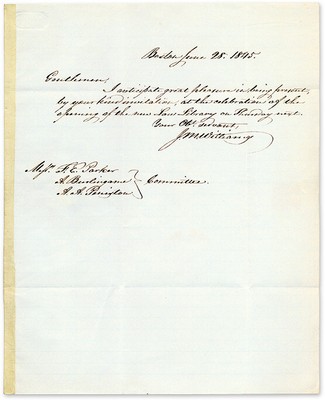 Boston June 28. 1845.
Gentlemen,
I anticipate great pleasure in being present,
by your kind invitation, at the celebration of the
opening of the new Law Library on Thursday next.
Your Obt. Servant,
J M Williams
Messrs. F. E. Parker
A. Burlingame
A. A.
Committee.